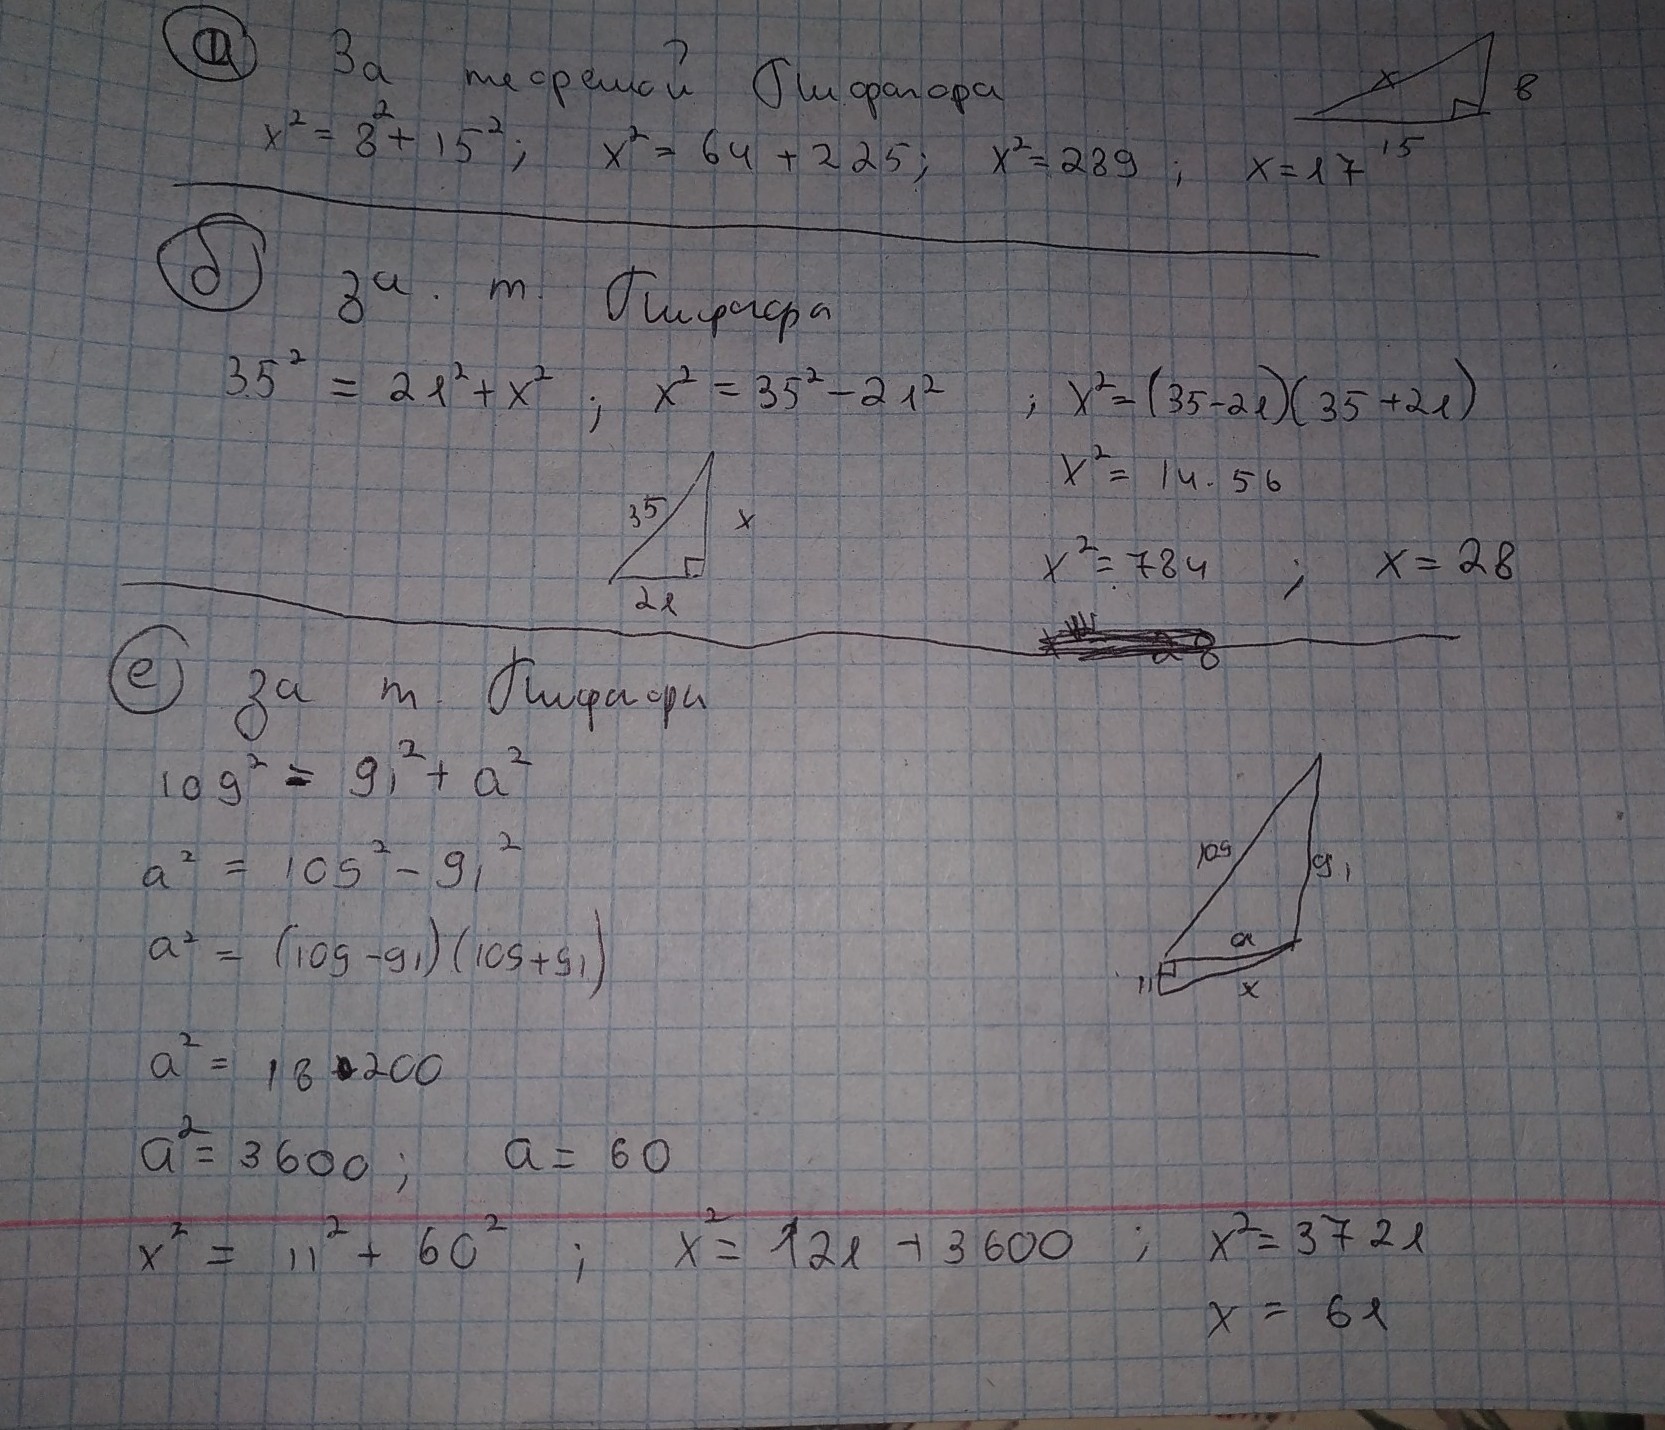 а За теоремой Пифагора
x² = 8² + 15²; x² = 64 + 225; x² = 289; x = 17
x 8 15
б за. т. Пифагора
35² = 21² + x²; x² = 35² - 21²; x² = (35-21)(35+21)
x² = 14 · 56
35 x 21
x² = 784; x = 28
28
е за т. Пифагора
109² = 91² + a²
a² = 109² - 91²
a² = (109-91)(109+91)
109 91 a 11 x
a² = 18 · 200
a² = 3600; a = 60
x² = 11² + 60²; x² = 121 + 3600; x² = 3721
x = 61